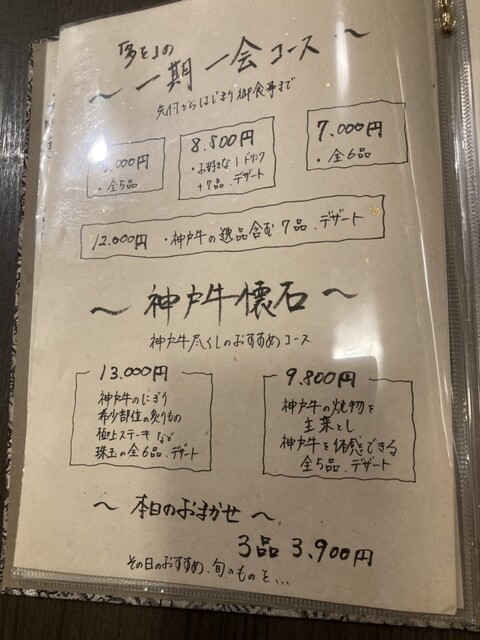 「多を」の
～一期一会コース～
先付からはじまり御食事まで
,000円
・全5品
8.500円
・お好きな1ドリンク
+7品.デザート
7.000円
・全6品
12.000円 ・神戸牛の逸品含む7品.デザート
～神戸牛懐石～
神戸牛尽くしのおすすめコース
13.000円
神戸牛のにぎり
希少部位の炙りもの
極上ステーキなど
珠玉の全6品.デザート
9.800円
神戸牛の焼物を
主菜とし
神戸牛を体感できる
全5品.デザート
～本日のおまかせ～
3品 3,900円
その日のおすすめ、旬のものを...